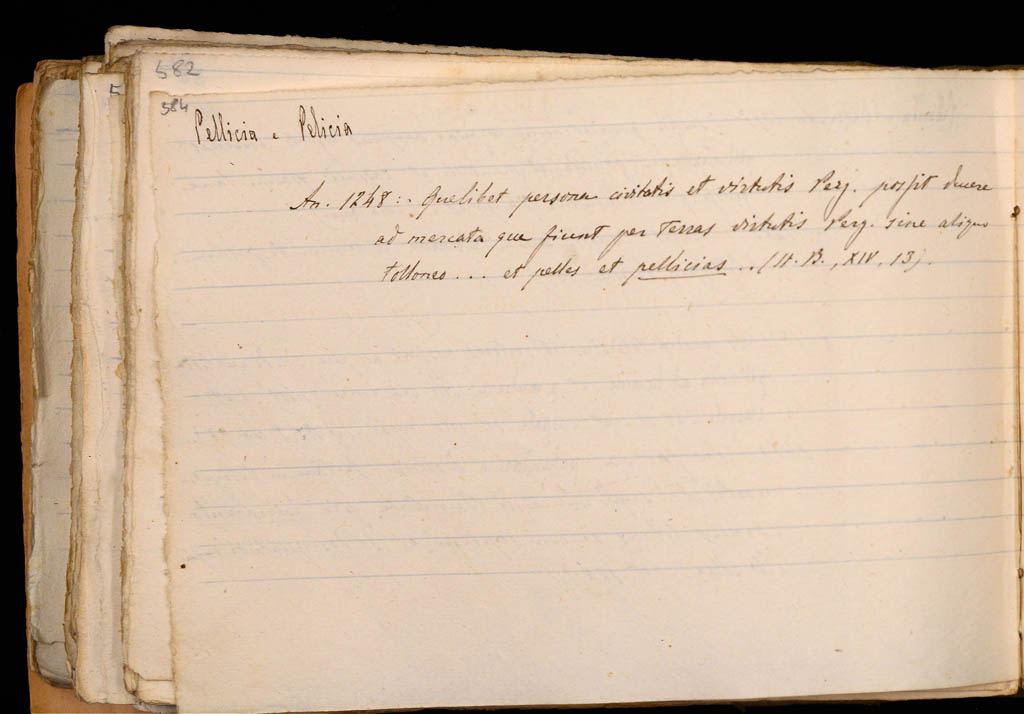 582
584
Pellicia e Pelicia
An. 1248 :. Quelibet persona civitatis et virtutis Perg. possit ducere
ad mercata que fiunt per terras virtutis Perg. sine aliquo
tolloneo ... et pelles et pellicias .. (H. B., XIV, 13).